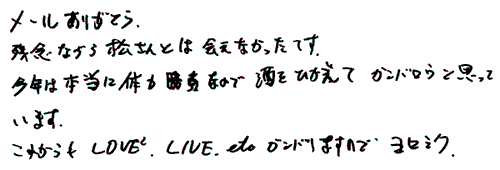 メールありがとう.
残念ながら松さんとは会えなかったです.
今年は本当に体も勝負なので 酒をひかえて ガンバロウと思って
います.
これからも LOVE², LIVE, etc ガンバリますので ヨロシク.